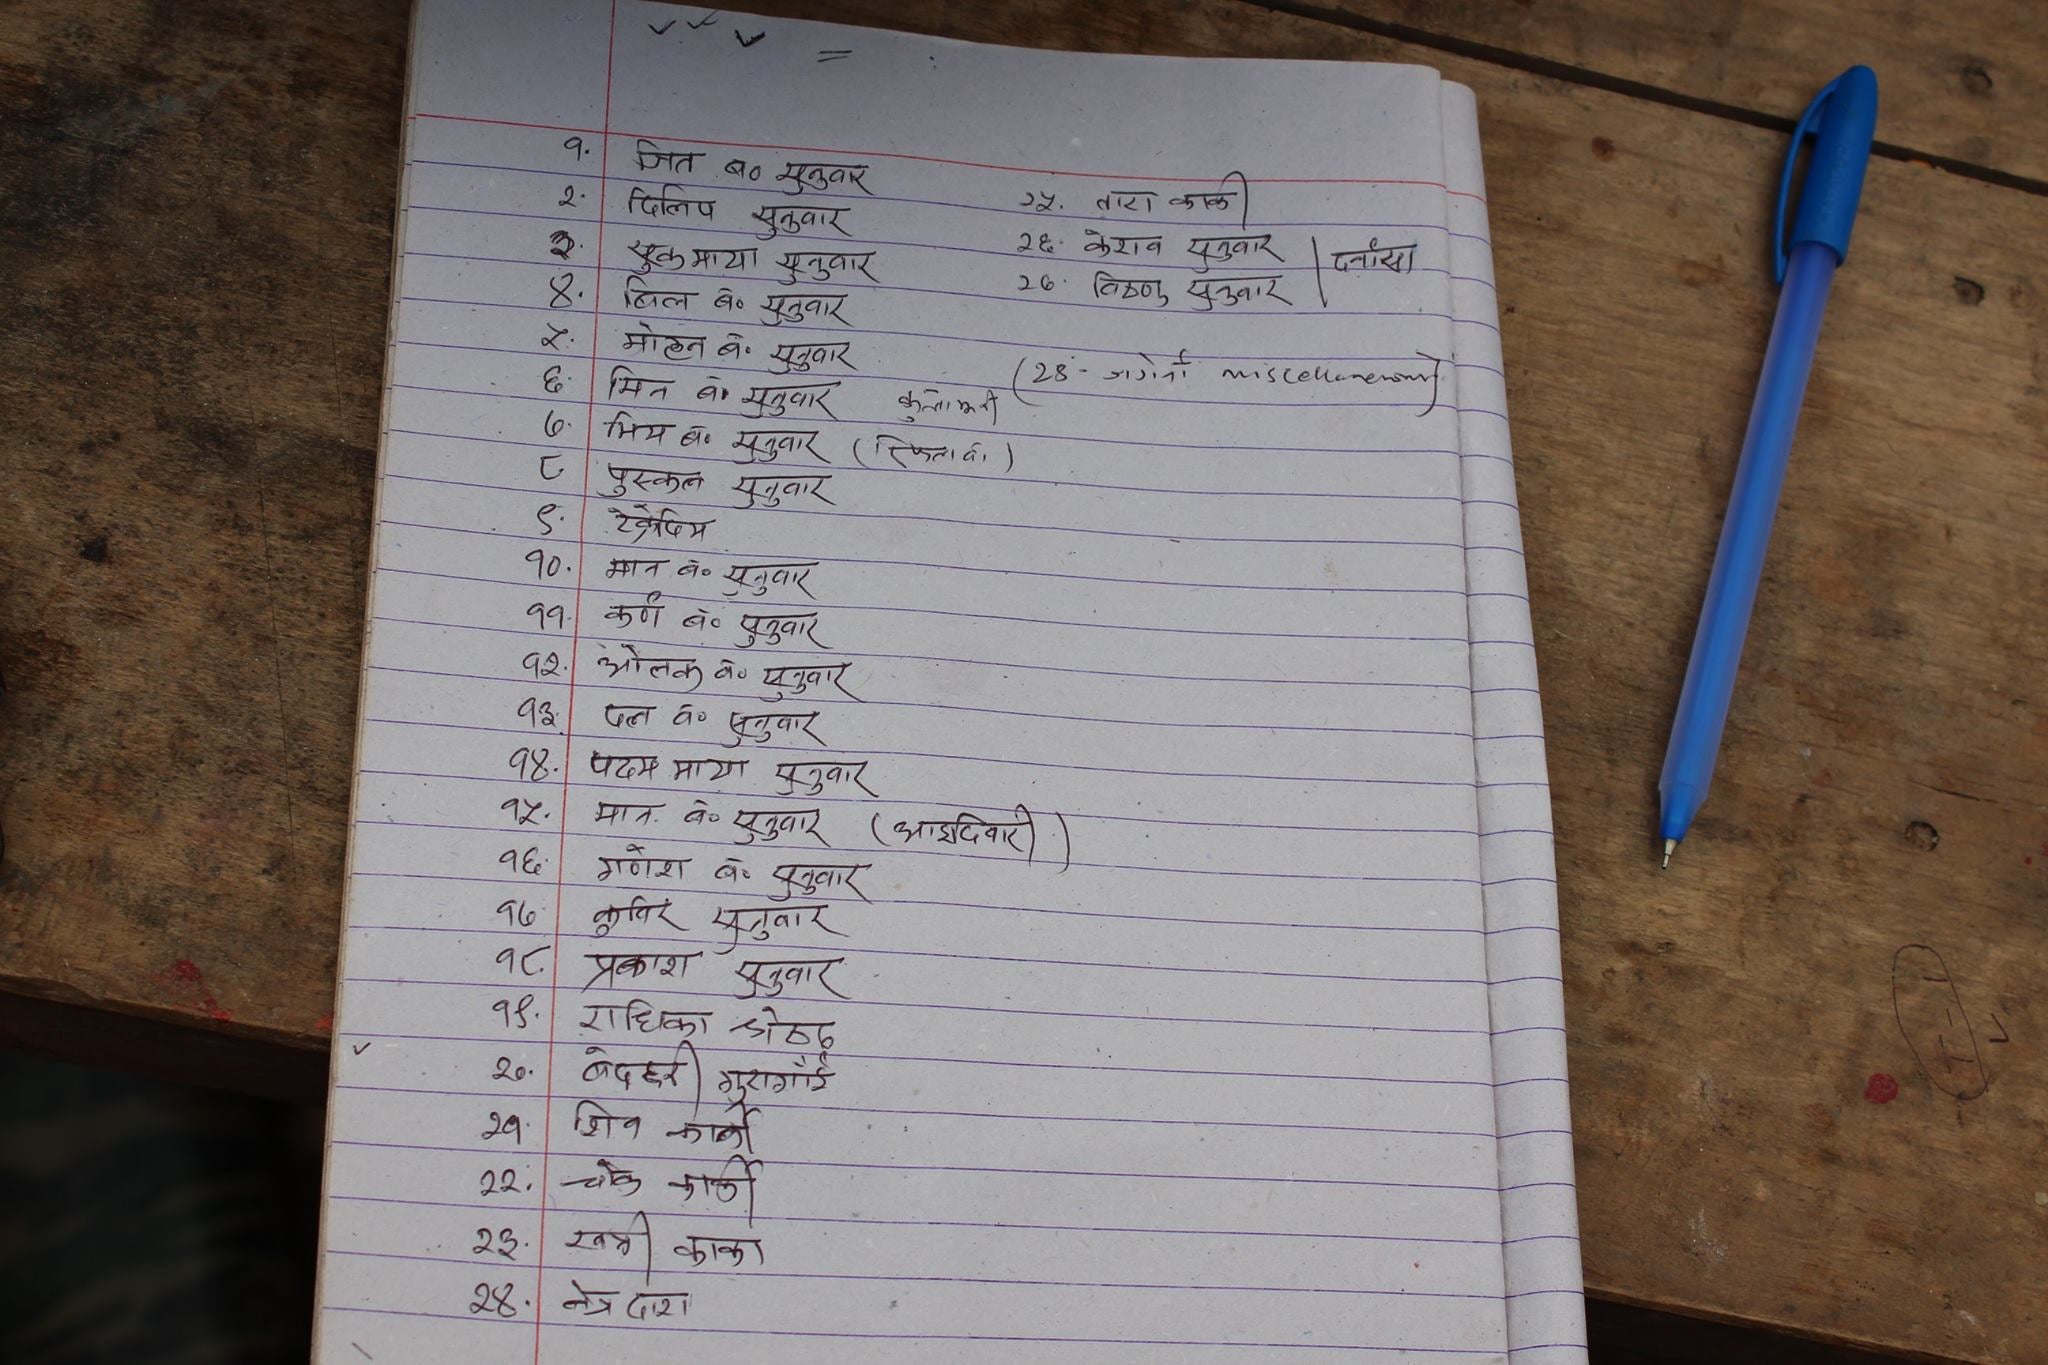 १. जित ब० सुनुवार
२. दिलिप सुनुवार
३. सुकमाया सुनुवार
४. बिल बं० सुनुवार
५. मोहन बं० सुनुवार
६. मिन बं० सुनुवार
७. भिम बं० सुनुवार
८ पुस्कल सुनुवार
९.
१०. मान बं० सुनुवार
११. कर्ण बं० सुनुवार
१२. ओलक बं० सुनुवार
१३. दल बं० सुनुवार
१४. पदम माया सुनुवार
१५. मान बं० सुनुवार (आइदिवारी)
१६. गणेश बं० सुनुवार
१७ कुविर सुनुवार
१८. प्रकाश सुनुवार
१९. राधिका श्रेष्ठ
२०. वेदहरी गुरागाँई
२१. शिव कार्की
२२. चोक कार्की
२३. खत्री काका
२४. नेत्र दाश
२५. तारा कार्की
२६. केशव सुनुवार
२७. विष्णु सुनुवार
(28 - miscellaneous)